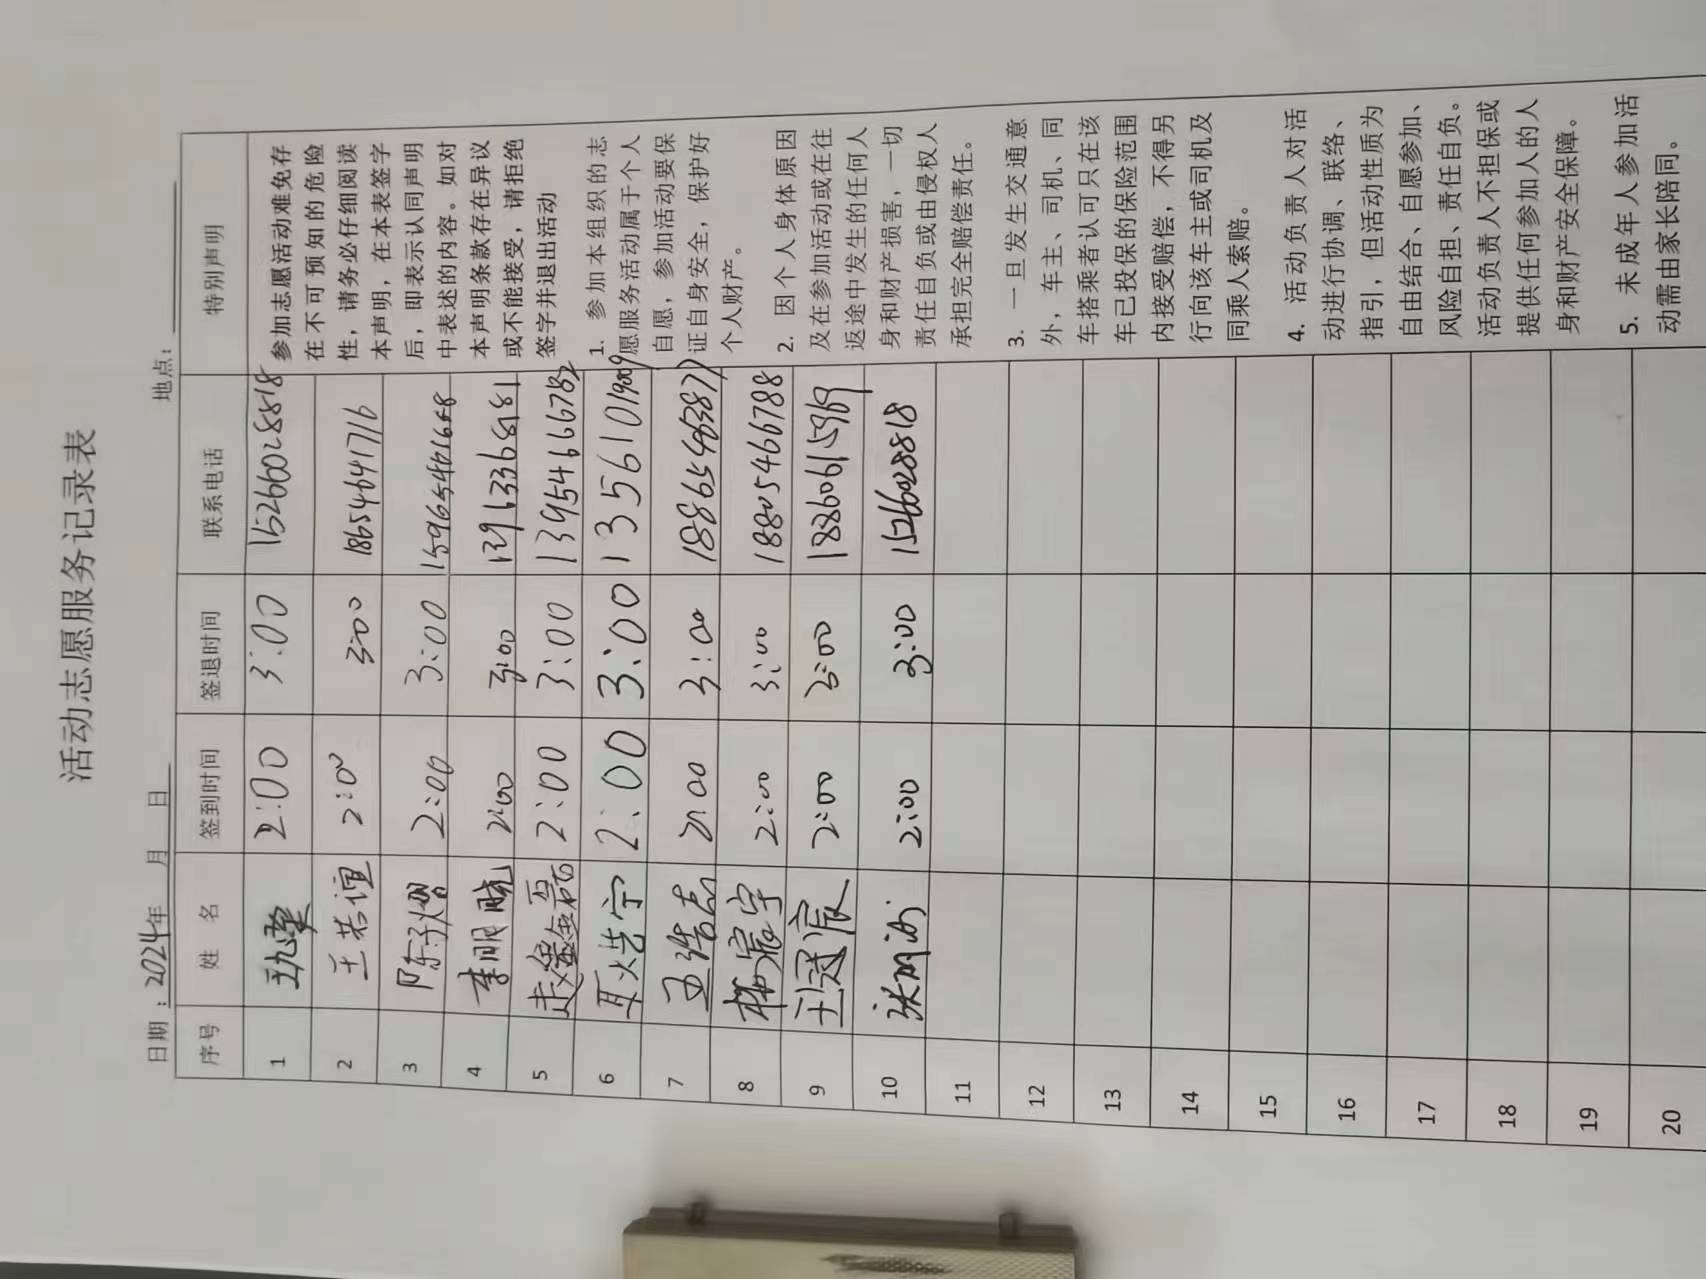 活动志愿服务记录表
日期：2024年 月 日 地点：
序号 姓 名 签到时间 签退时间 联系电话 特别声明
1 2:00 3:00 15266028818
2 王若谊 2:00 3:00 18654641716
3 陈子熠 2:00 3:00
4 李明晓 2:00 3:00
5 2:00 3:00 13954666782
6 耿浩宁 2:00 3:00
7 王浩志 2:00 3:00
8 杨宸宇 2:00 3:00 18805466788
9 王冠宸 2:00 3:00 18860615969
10 2:00 3:00 15266028818
11
12
13
14
15
16
17
18
19
20
参加志愿活动难免存
在不可预知的危险
性，请务必仔细阅读
本声明，在本表签字
后，即表示认同声明
中表述的内容。如对
本声明条款存在异议
或不能接受，请拒绝
签字并退出活动
1. 参加本组织的志
愿服务活动属于个人
自愿，参加活动要保
证自身安全，保护好
个人财产。
2. 因个人身体原因
及在参加活动或在往
返途中发生的任何人
身和财产损害，一切
责任自负或由侵权人
承担完全赔偿责任。
3. 一旦发生交通意
外，车主、司机、同
车搭乘者认可只在该
车已投保的保险范围
内接受赔偿，不得另
行向该车主或司机及
同乘人索赔。
4. 活动负责人对活
动进行协调、联络、
指引，但活动性质为
自由结合、自愿参加、
风险自担、责任自负。
活动负责人不担保或
提供任何参加人的人
身和财产安全保障。
5. 未成年人参加活
动需由家长陪同。